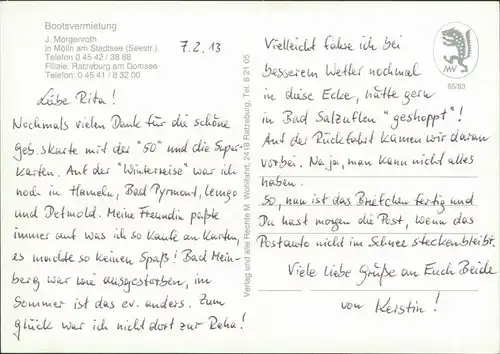 Bootsvermietung
J. Morgenroth
in Mölln am Stadtsee (Seestr.)
Telefon 0 45 42 / 38 88
Filiale: Ratzeburg am Domsee
Telefon: 0 45 41 / 8 32 00
7.2.13
Liebe Rita!
Nochmals vielen Dank für die schöne
Geb.skarte mit der "50" und die Super-
karten. Auf der "Winterreise" war ich
noch in Hameln, Bad Pyrmont, Lemgo
und Detmold. Meine Freundin paßte
immer auf was ich so kaufe an Karten,
es machte so keinen Spaß! Bad Mein-
berg war wie ausgestorben, im
Sommer ist das ev. anders. Zum
Glück war ich nicht dort zur Reha!
Verlag und alle Rechte M. Wohlfahrt, 2418 Ratzeburg, Tel. 8 21 05
MW
85/83
Vielleicht fahre ich bei
besserem Wetter nochmal
in diese Ecke, hätte gern
in Bad Salzuflen "geshoppt"!
Auf der Rückfahrt kamen wir daran
vorbei. Na ja, man kann nicht alles
haben.
So, nun ist das Briefchen fertig und
Du hast morgen die Post, wenn das
Postauto nicht im Schnee steckenbleibt.
Viele liebe Grüße an Euch Beide
von Kerstin!